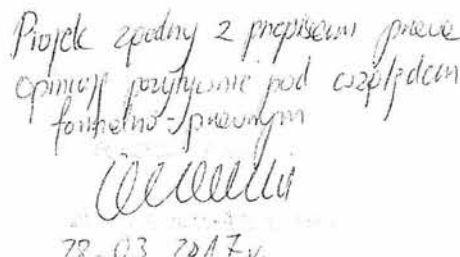 Projekt zgodny z przepisami prawa
opiniuję pozytywnie pod względem
formalno-prawnym
28.03.2017r.